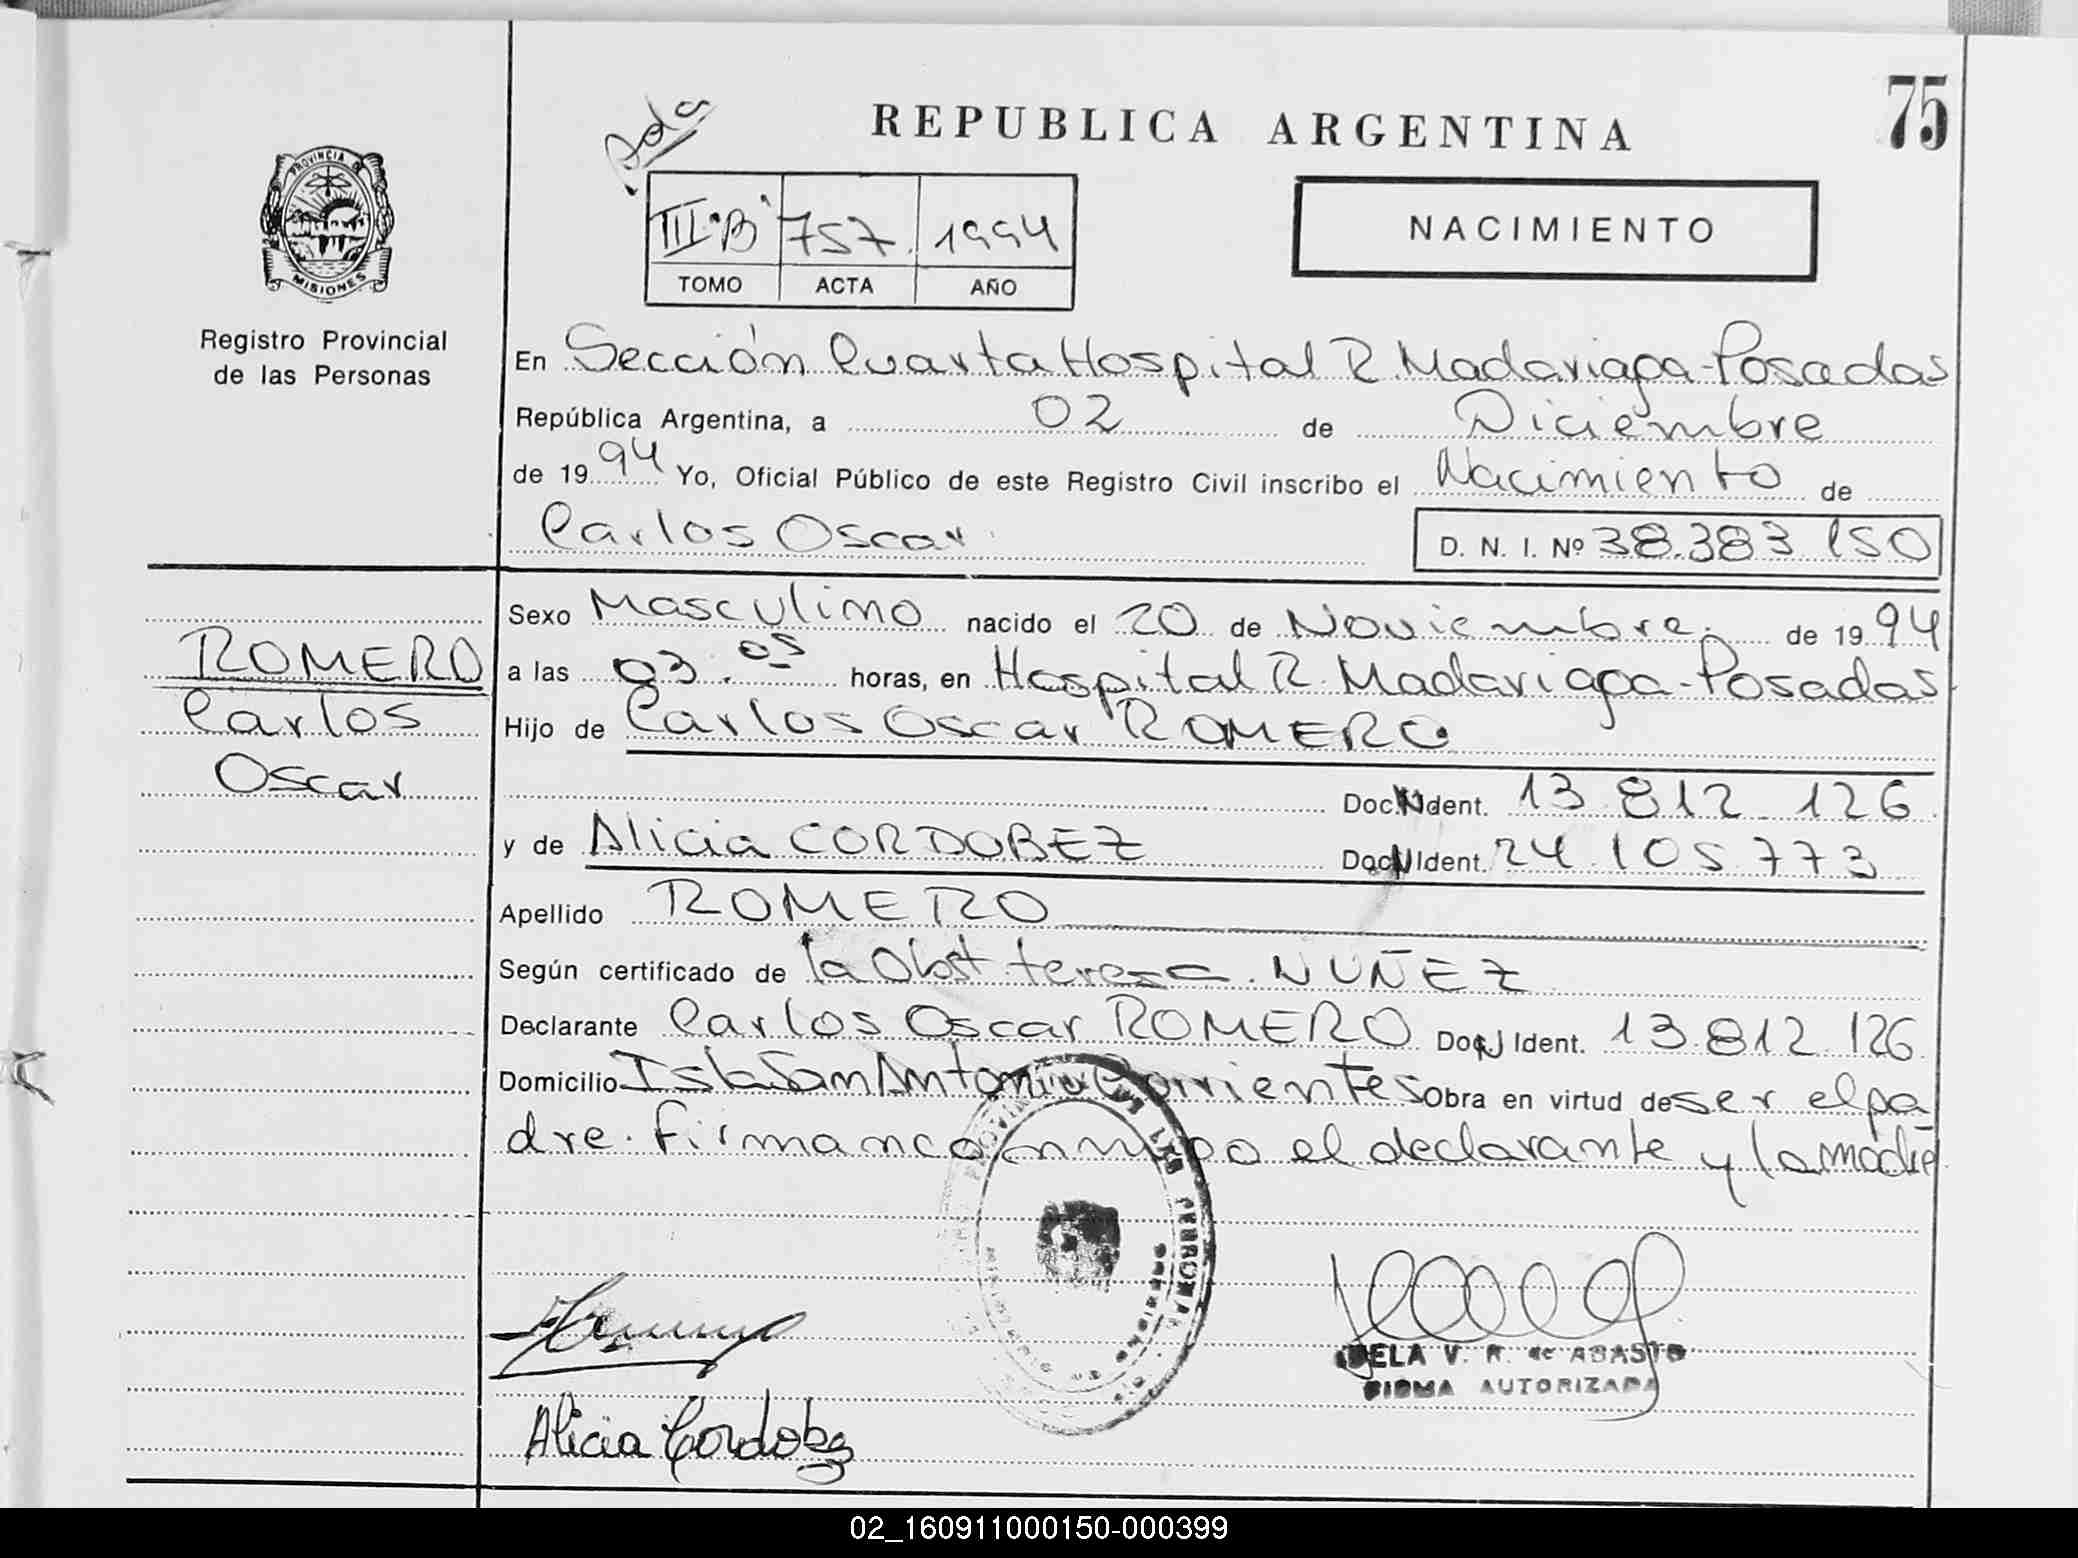 75
REPUBLICA ARGENTINA
PROVINCIA DE
MISIONES
Registro Provincial
de las Personas
III "B" 757. 1994
TOMO ACTA AÑO
NACIMIENTO
En Sección Cuarta Hospital R. Madariaga - Posadas
República Argentina, a 02 de Diciembre
de 1994 Yo, Oficial Público de este Registro Civil inscribo el Nacimiento de
Carlos Oscar
D. N. I. Nº 38.383 150
ROMERO
Carlos
Oscar
Sexo Masculino nacido el 20 de Noviembre. de 1994
a las 03:05 horas, en Hospital R. Madariaga - Posadas
Hijo de Carlos Oscar ROMERO
Doc. N Ident. 13.812.126
y de Alicia CORDOBEZ Doc N Ident. 24.105.773
Apellido ROMERO
Según certificado de la Obst. teresa. NUÑEZ
Declarante Carlos Oscar ROMERO Doc N Ident. 13.812.126
Domicilio Isla San Antonio Corrientes Obra en virtud de ser el pa
dre. firman conmigo el declarante y la madre
Alicia Cordobez
V. R. de ABASTO
FIRMA AUTORIZADA
02_160911000150-000399